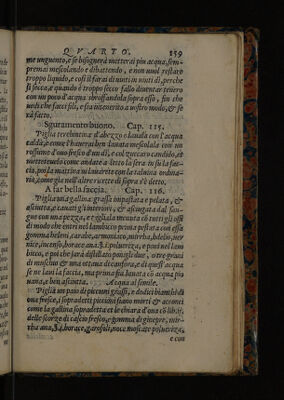 QVARTO. 259
me unguento, e se bisognerà metterai piu acqua, sem-
pre mai mescolando e dibattendo, e non uuol restare
troppo liquido, e cosi si farai di uinti in uinti dì, perche
si secca, e quando è troppo secco fallo diuentar tenero
con un poco d'acqua sbroffandola sopra esso, sin che
uedi che facci fili, e sia uiscoso a nostro modo, & se
rà fatto.
Sguramento buono. Cap. 115.
Piglia terebentina d'abezzo e lauala con l'acqua
calda, e come l'hauerai ben lauata mescolala con un
rossumo d'ouo fresco d'un dì, e col zuccaro candido, et
mettete uelo come andate a letto la sera in su la fac-
cia, poi la mattina ui lauarete con la talnina ordina-
ria, come già nell'altre ricette di sopra s'è detto.
A far bella faccia. Cap. 116.
Piglia una gallina grassa impastata e pelata, &
asciutta, e cauati gl'interiori, & asciugata dal san-
gue con una pezza, e tagliala menuta cõ tutti gli ossi
di modo che entri nel lambicco prima pesta e con essa
gomma heleni, carabe, armoniaco, mirrha, bdelio, uer
nice, incenso, borace ana. ℥. i. poluerizza, e poni nel lam
bicco, e poi che sarà distillato ponigli due, o tre grani
di muschio & una oncia di canfora, e di quest'acqua
se ne laui la faccia, ma prima sia lauata cõ acqua pio
uana, e ben asciutta. Acqua al simile.
Piglia un paio di piccioni grassi, e dodici bianchi di
oua fresce, i sopradetti piccioni siano morti & acconci
come la gallina sopradetta et le chiara d'oua cõ lib. i.
delle scorze di calcio fresco, e gomma di ginepro, mir-
rha ana. ℥. i. borace, garofoli, noce moscate poluerizza,
e con